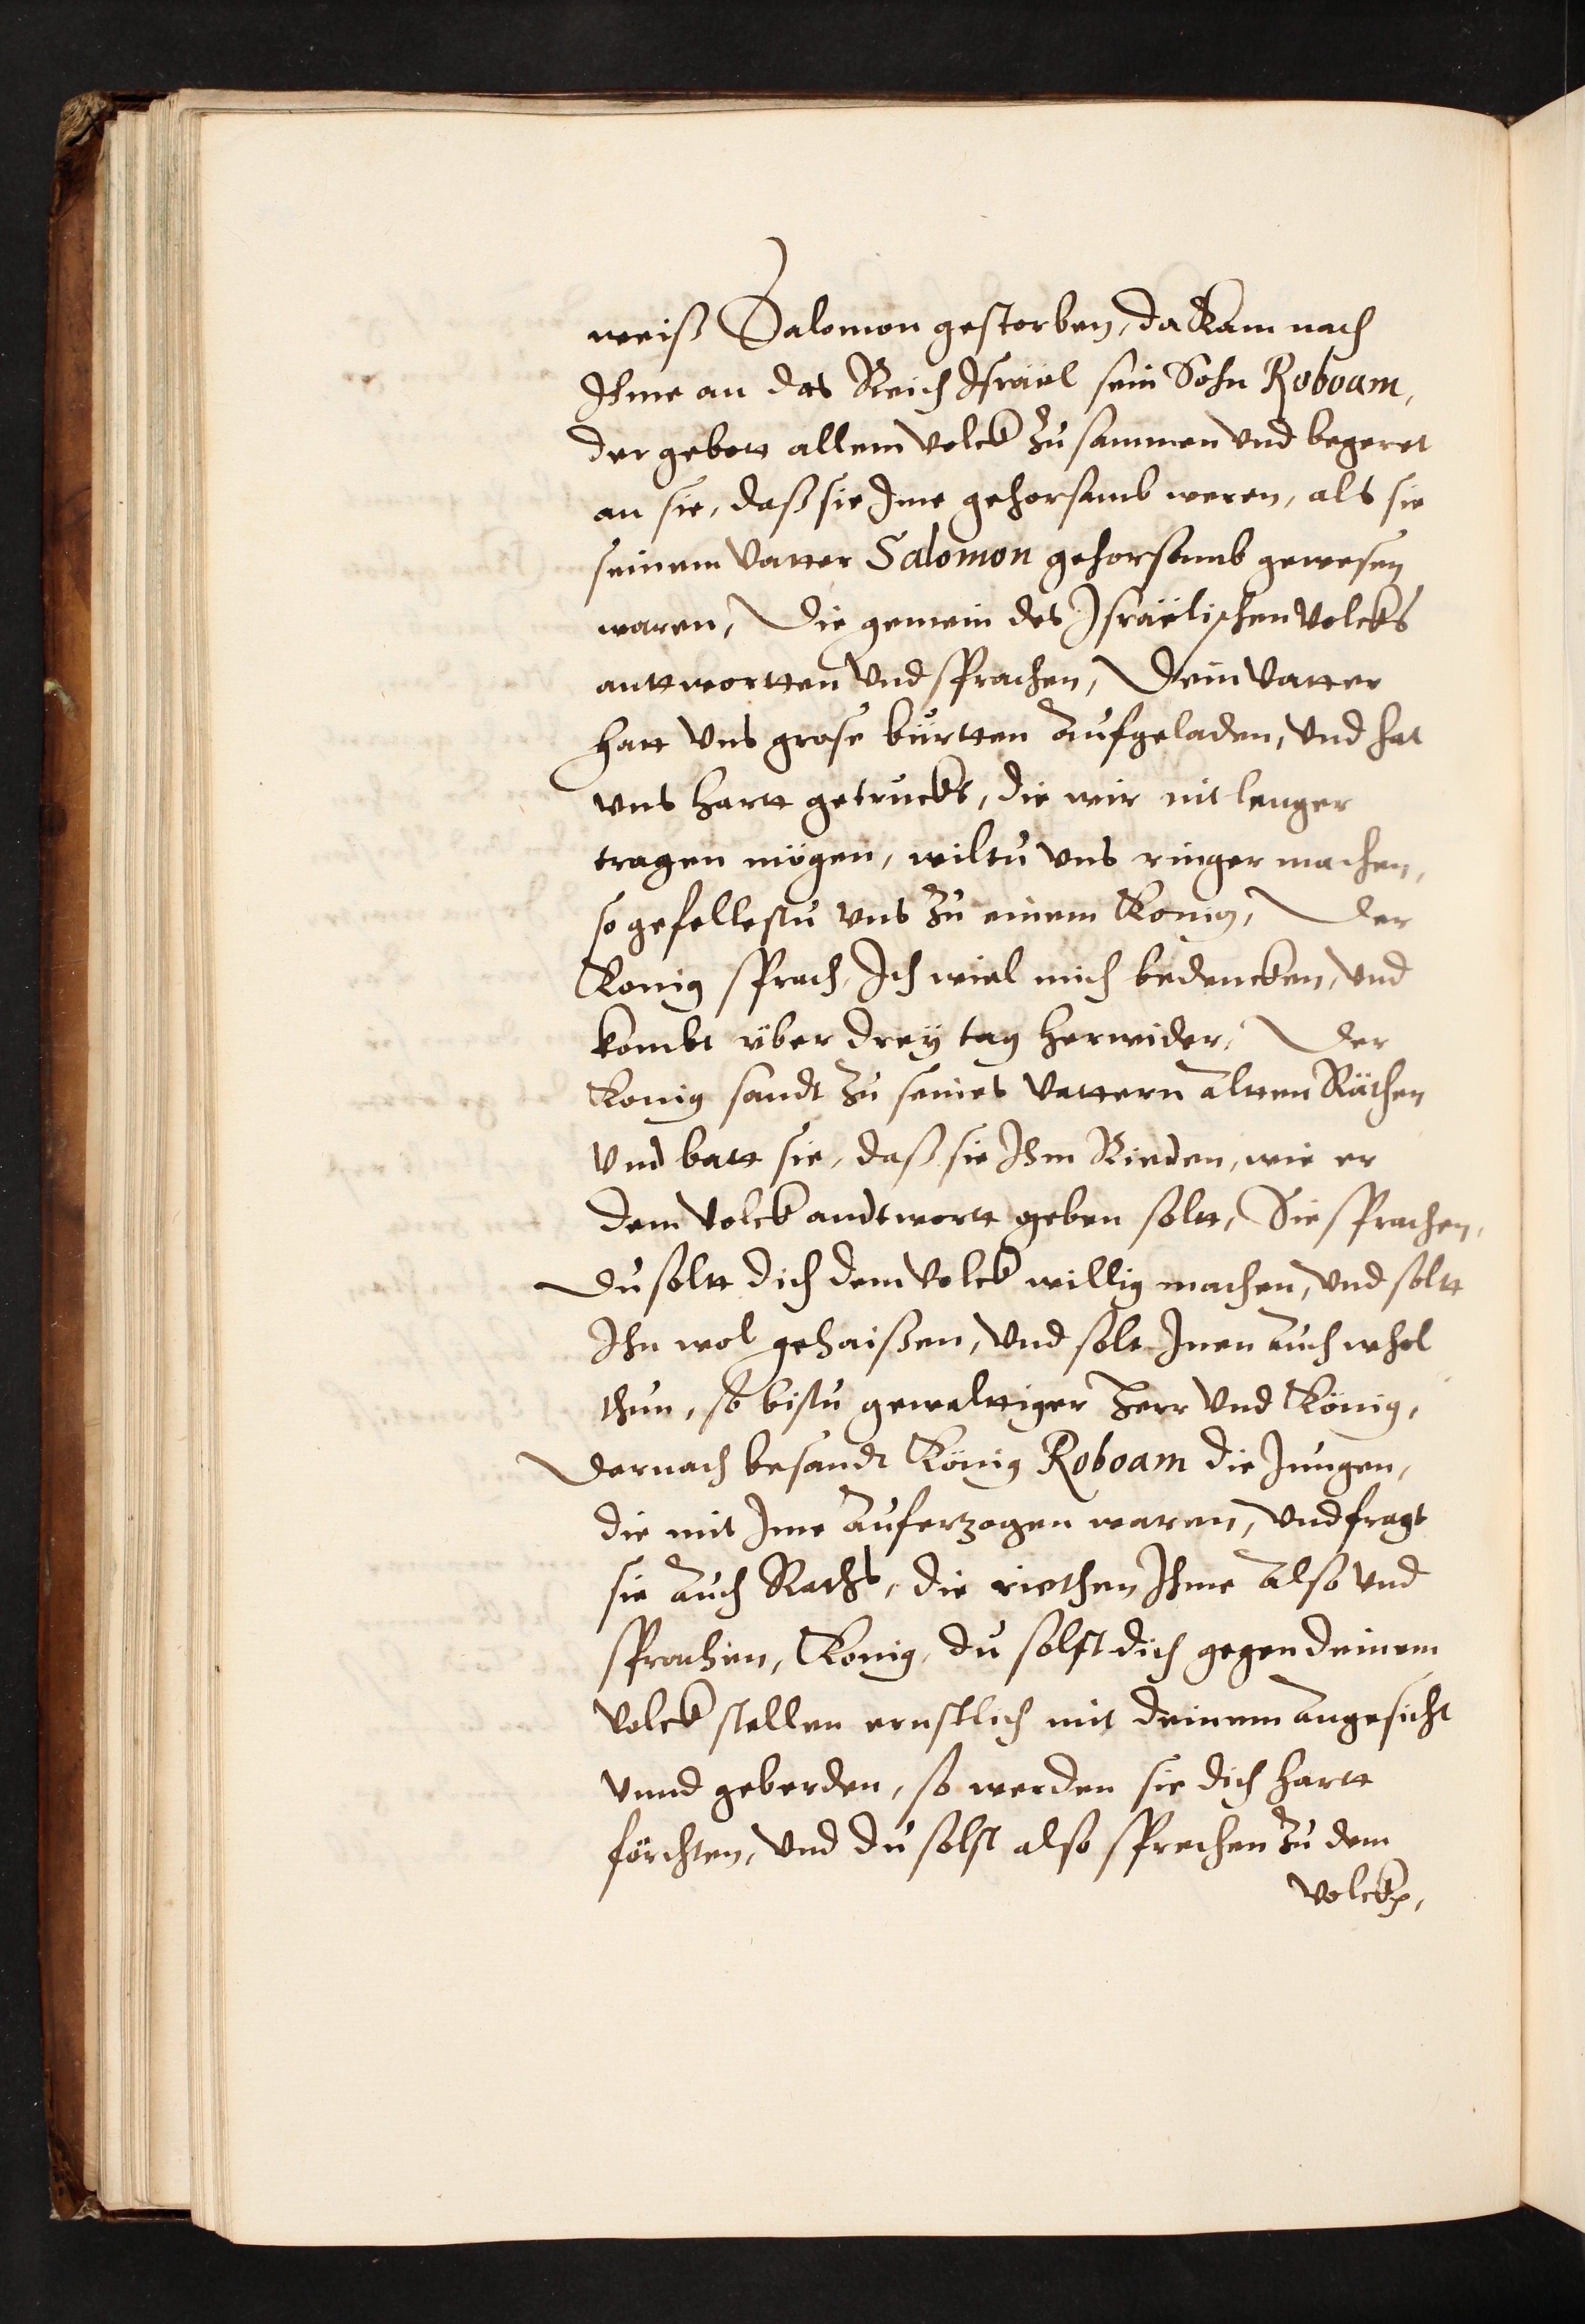 weiß Salomon gestorben, da kam nach
Ihme an das Reich Israel sein Sohn Roboam,
der gebott allem Volck zu sammen und begeret
an sie, daß sie Ime gehorsamb weren, als sie
seinem Vatter Salomon gehorsamb gewesen
waren, Die gemein des Israëlischen Volcks
anttwortten Und sprachen, Dein Vatter
hatt Uns grose bürtten Aufgeladen, Und hat
uns hartt getruckt, die wir nit lenger
tragen mögen, wiltu uns ringer machen,
so gefellestu uns zu einem Konig, Der
Konig sprach, Ich wiel mich bedencken, Und
kombt über drey tag herwider, Der
Konig sandt zu seines Vattern Altten Räthen
Und batt sie, daß sie Ihm Rieden, wie er
dem Volck andtwortt geben soltt, Sie sprachen,
Du soltt dich dem Volck willig machen, Und soltt
Ihn wol gehaißen, Und solt Inen Auch whol
thun, so bistu gewalttiger Herr Und König,
Darnach besandt König Roboam die Jungen,
die mit Ime Auferzogen waren, Und fragt
sie Auch Raths, die riethen Ihme Also Und
sprachen, Konig, du solst dich gegen deinem
Volck stellen ernstlich mit deinem Angesicht
Unnd geberden, so werden sie dich hartt
förchten, Und du solst also sprechen zu dem
Volck,